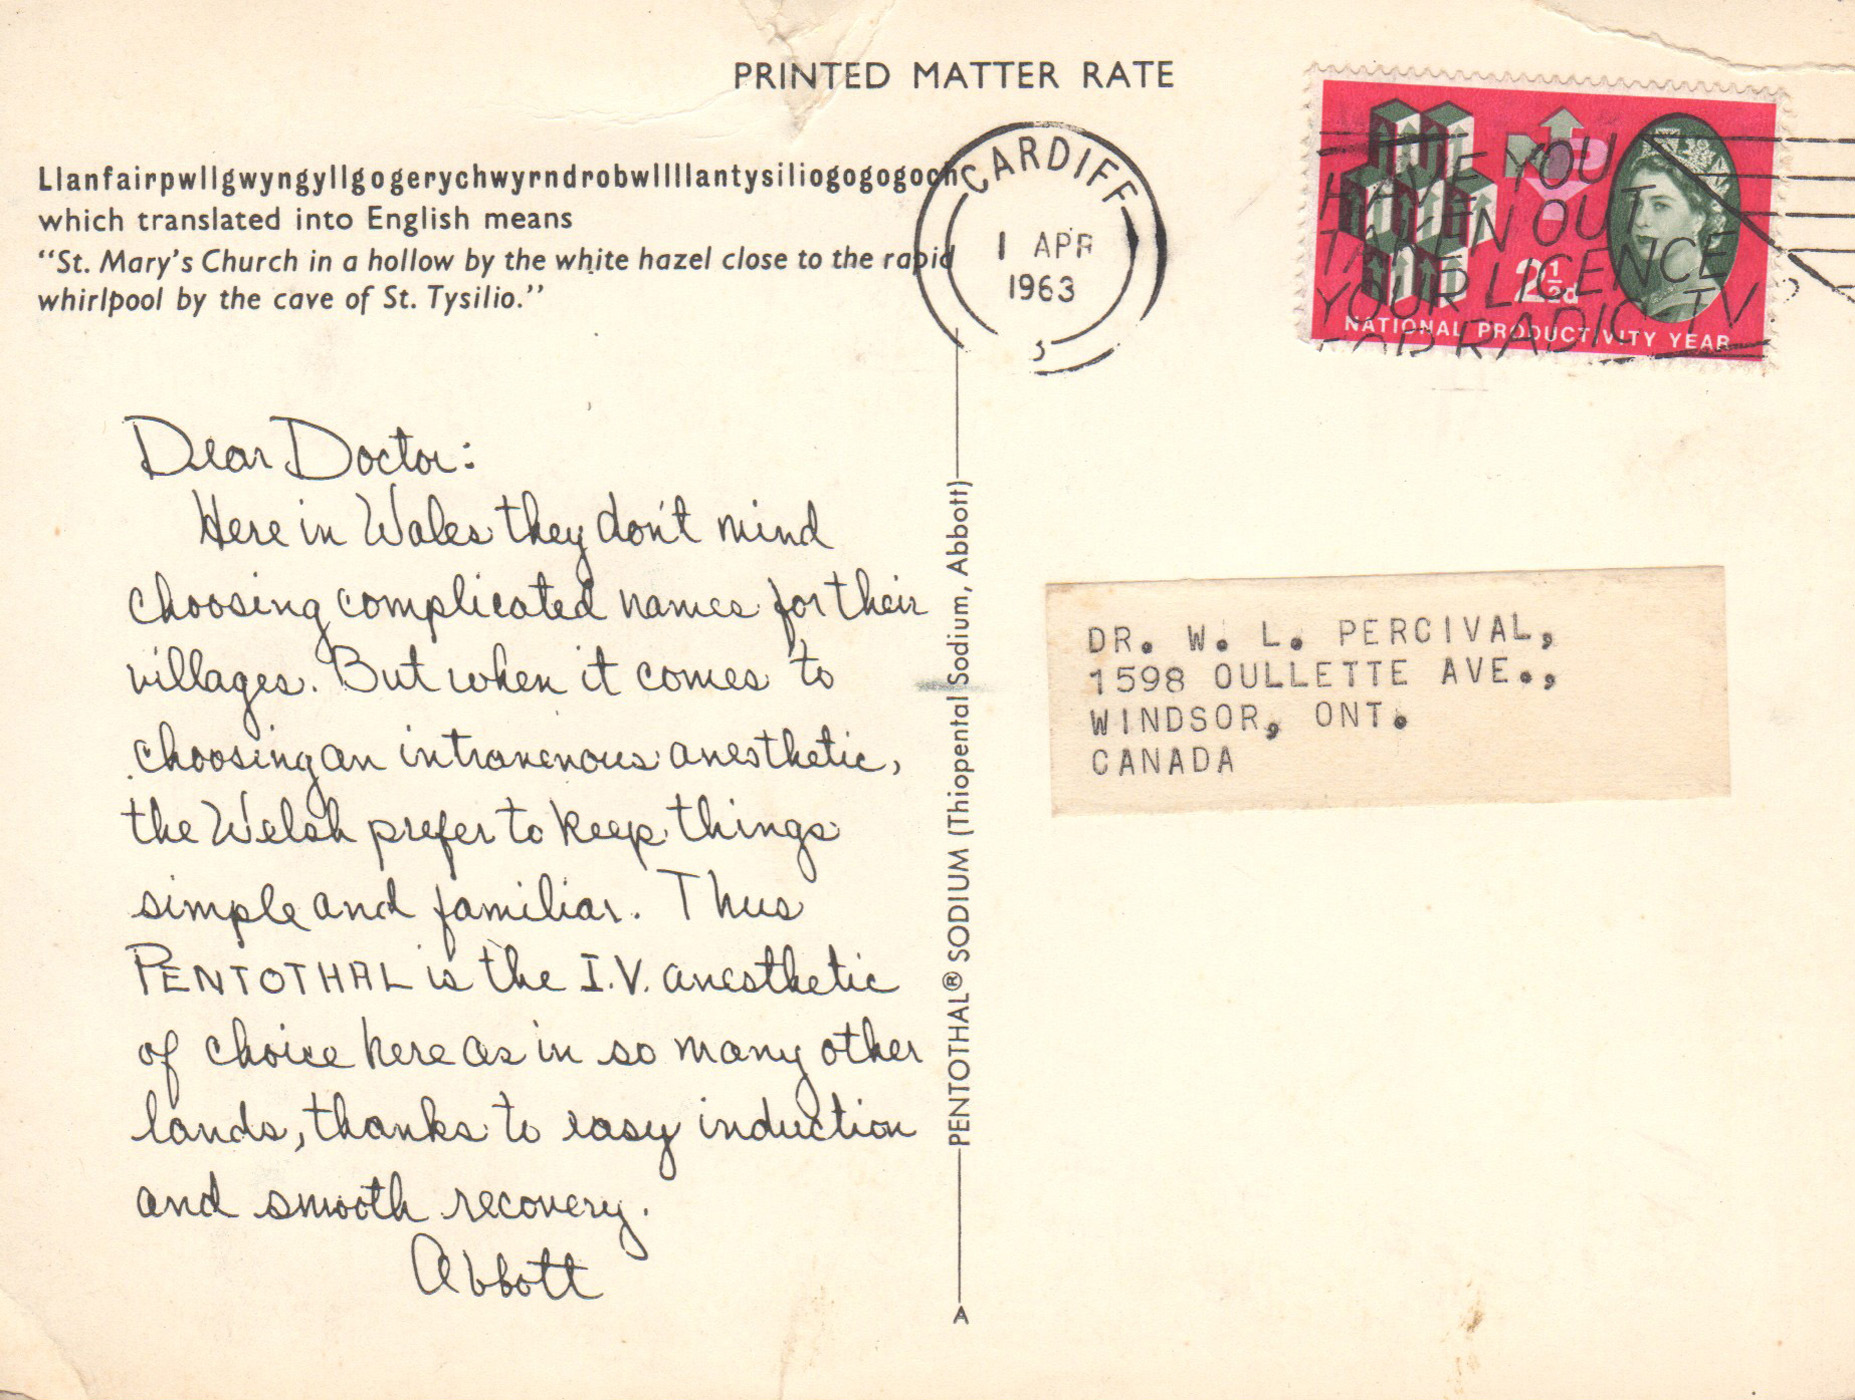 PRINTED MATTER RATE
Llanfairpwllgwyngyllgogerychwyrndrobwllllantysiliogogogoch
which translated into English means
“St. Mary’s Church in a hollow by the white hazel close to the rapid
whirlpool by the cave of St. Tysilio.”
CARDIFF
1 APR
1963
HAVE YOU
TAKEN OUT
YOUR LICENCE
FOR RADIO TV
2½d
NATIONAL PRODUCTIVITY YEAR
Dear Doctor:
Here in Wales they don't mind
choosing complicated names for their
villages. But when it comes to
choosing an intravenous anesthetic,
the Welsh prefer to keep things
simple and familiar. Thus
PENTOTHAL is the I.V. anesthetic
of choice here as in so many other
lands, thanks to easy induction
and smooth recovery.
Abbott
PENTOTHAL® SODIUM (Thiopental Sodium, Abbott)
A
DR. W. L. PERCIVAL,
1598 OULLETTE AVE.,
WINDSOR, ONT.
CANADA